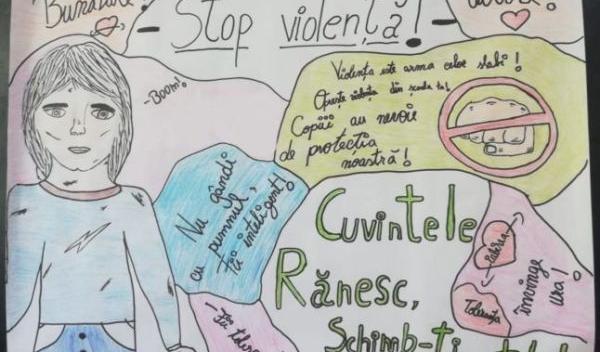 Bunătate!
- Stop violența! -
-Boom!
Violența este arma celor slabi!
Oprește violența din școala ta!
Copiii au nevoie
de protecția
noastră!
Nu gândi
cu pumnul,
fii inteligent!
Cuvintele
Rănesc,
Schimb-ți
Iubirea
învinge
Ura!
Toleranța
Fii